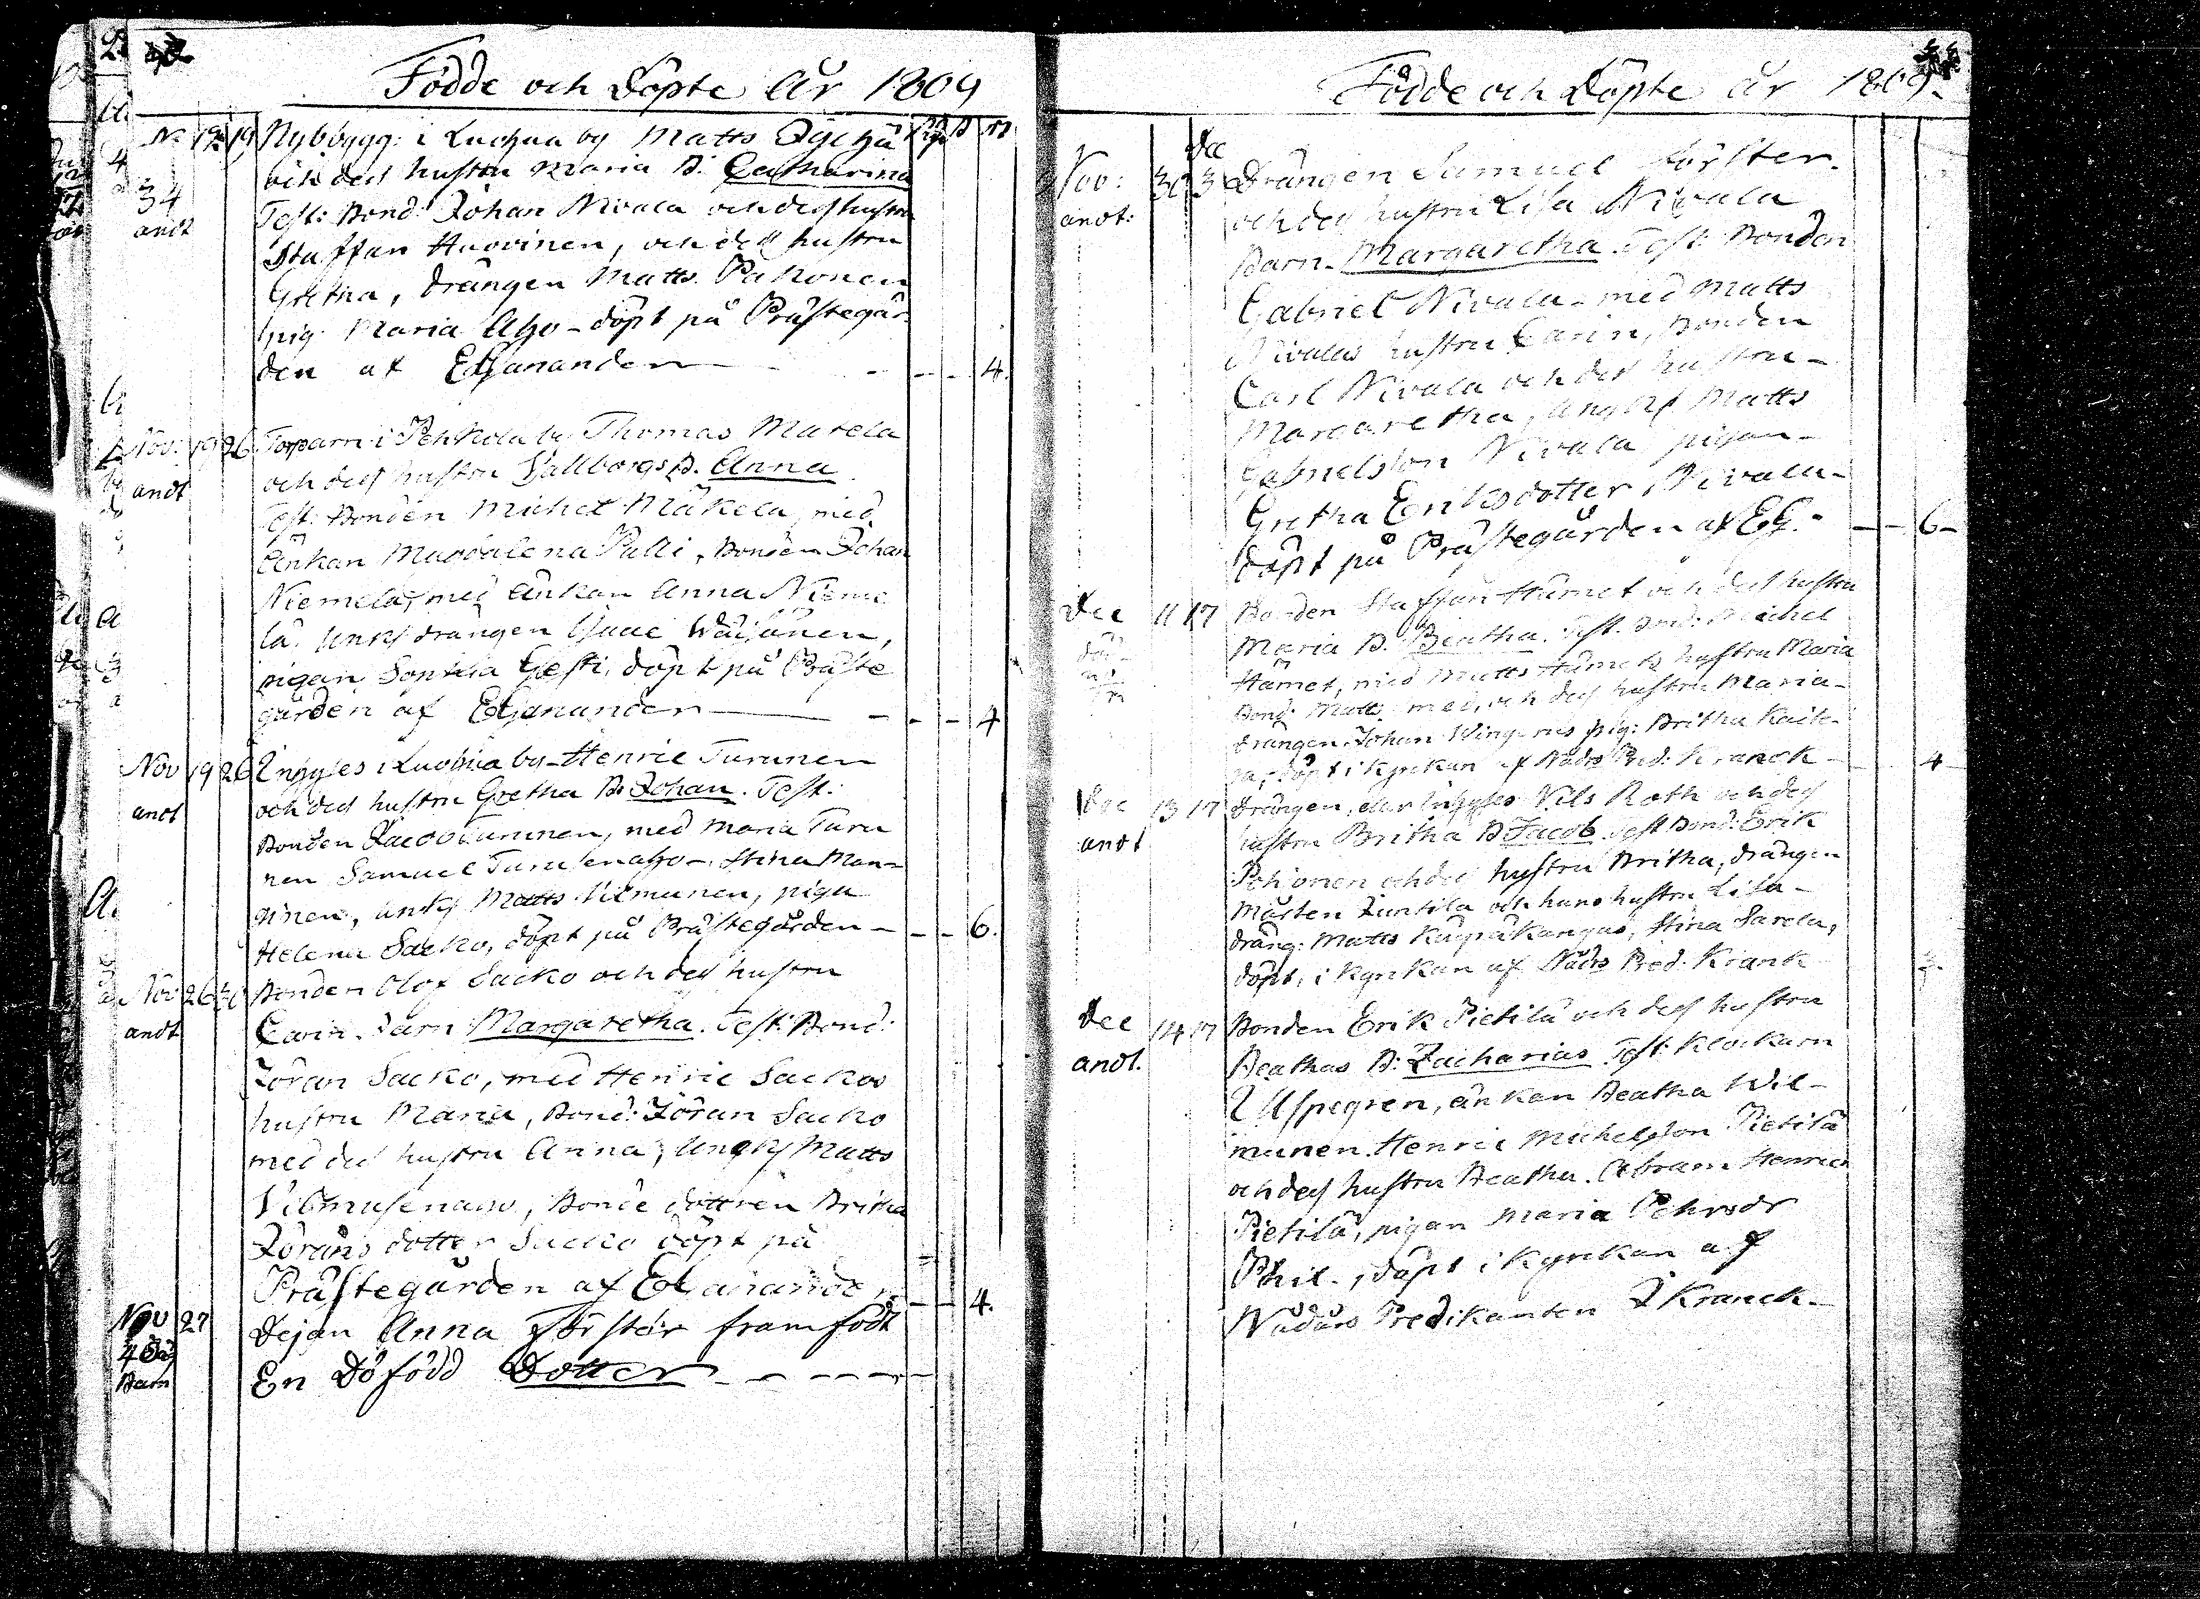 Födde och Döpte År 1809
Nybbygg: i Luchua by Matts
och dess hustru Maria B. Catharina
34 Test: Bond: Johan Nivala och dess hustru
andt Staffan Huovinen, och dess hustru
Gretha, drängen Matts Pakonen
pig: Maria Aho - döpt på Prästegår
den af EGananden - - - 4.
Nov: 19 26 Torparn i Pehkola by Thomas Marela
och dess hustru Vallborgs B. Anna
andt Test: Bonden Michel Mäkela, med
Änkan Magdalena Palli, Bonden Johan
Niemelä, med änkan Anna Nieme
lä. Unkf drängen Isaac Wäisänen,
pigan Sophia Gesti, döpt på Präste
gården af EGananden - - - 4
Nov 19 26 Inhyses i Luohua by Henric Turunen
och dess hustru Gretha B. Johan. Test:
andt Bonden Jacob Turunen, med Maria Turu
nen Samuel Stina Man-
ginen, unkf Matts Vilmunen, piga
Helena Sacko, döpt på Prästegården - - - 6.
Nov 26 Bonden Olof Sacko och dess hustru
andt Carin. Barn Margaretha. Test: Bond:
Jöran Sacko, med Henric Sackos
hustru Maria, Bond: Jöran Sacko
med dess hustru Anna, Ungkf Matts
Bonde dottren Britha
Jörans dotter Sacko döpt på
Prästegården af EGananden - - 4.
Nov 27 Pejan Anna Förstör framfödt
Barn En Döfödd Dotter - - - -
Födde och Döpte År 1809.
Dec
Nov: 30 3 Drängen Samuel Förster.
andt: och dess hustru Lisa Nivala
Barn. Margaretha. Test: Bonden
Gabriel Nivala - med Matts
Nivalas hustru Carin, Bonden
Carl Nivala och dess hustru -
Margaretha, Ungkf Matts
Gabrielsson Nivala pigan -
Gretha Eriksdotter Nivala -
döpt på Prästegården af EG. - - - 6 -
Dec 11 17 Bonden Staffan Hämet och dess hustru
Maria B. Beatha. Test. Bond: Michel
Hämet, med Matts Hämets hustru Maria
Bond: Matts med, och dess hustru Maria -
drängen Johan pig: Britha
döpt i Kyrkan af Nåds Pred: Kranck - - 4
Dec 13 17 Drängen, eller inhyses Nils Roth och dess
andt hustru Britha B. Jacob. Test Bond: Erik
Pohjonen och dess hustru Britha, drängen
Mårten Juntila och hans hustru Lisa -
dräng: Matts Stina Sarela,
döpt, i Kyrkan af Nåds Pred. Krank
Dec 14 17 Bonden Erik Pietilä och dess hustru
andt. Beathas B: Zacharias. Test: Klockarn
Uspegren, änkan Beatha Wil-
munen. Henric Michelsson Pietilä
och dess hustru Beatha. Abram Henrics
Pietilä, pigan Maria Pehrsdr
Phil., döpt i Kyrkan af
Nådårs Predikanten J Kranck -